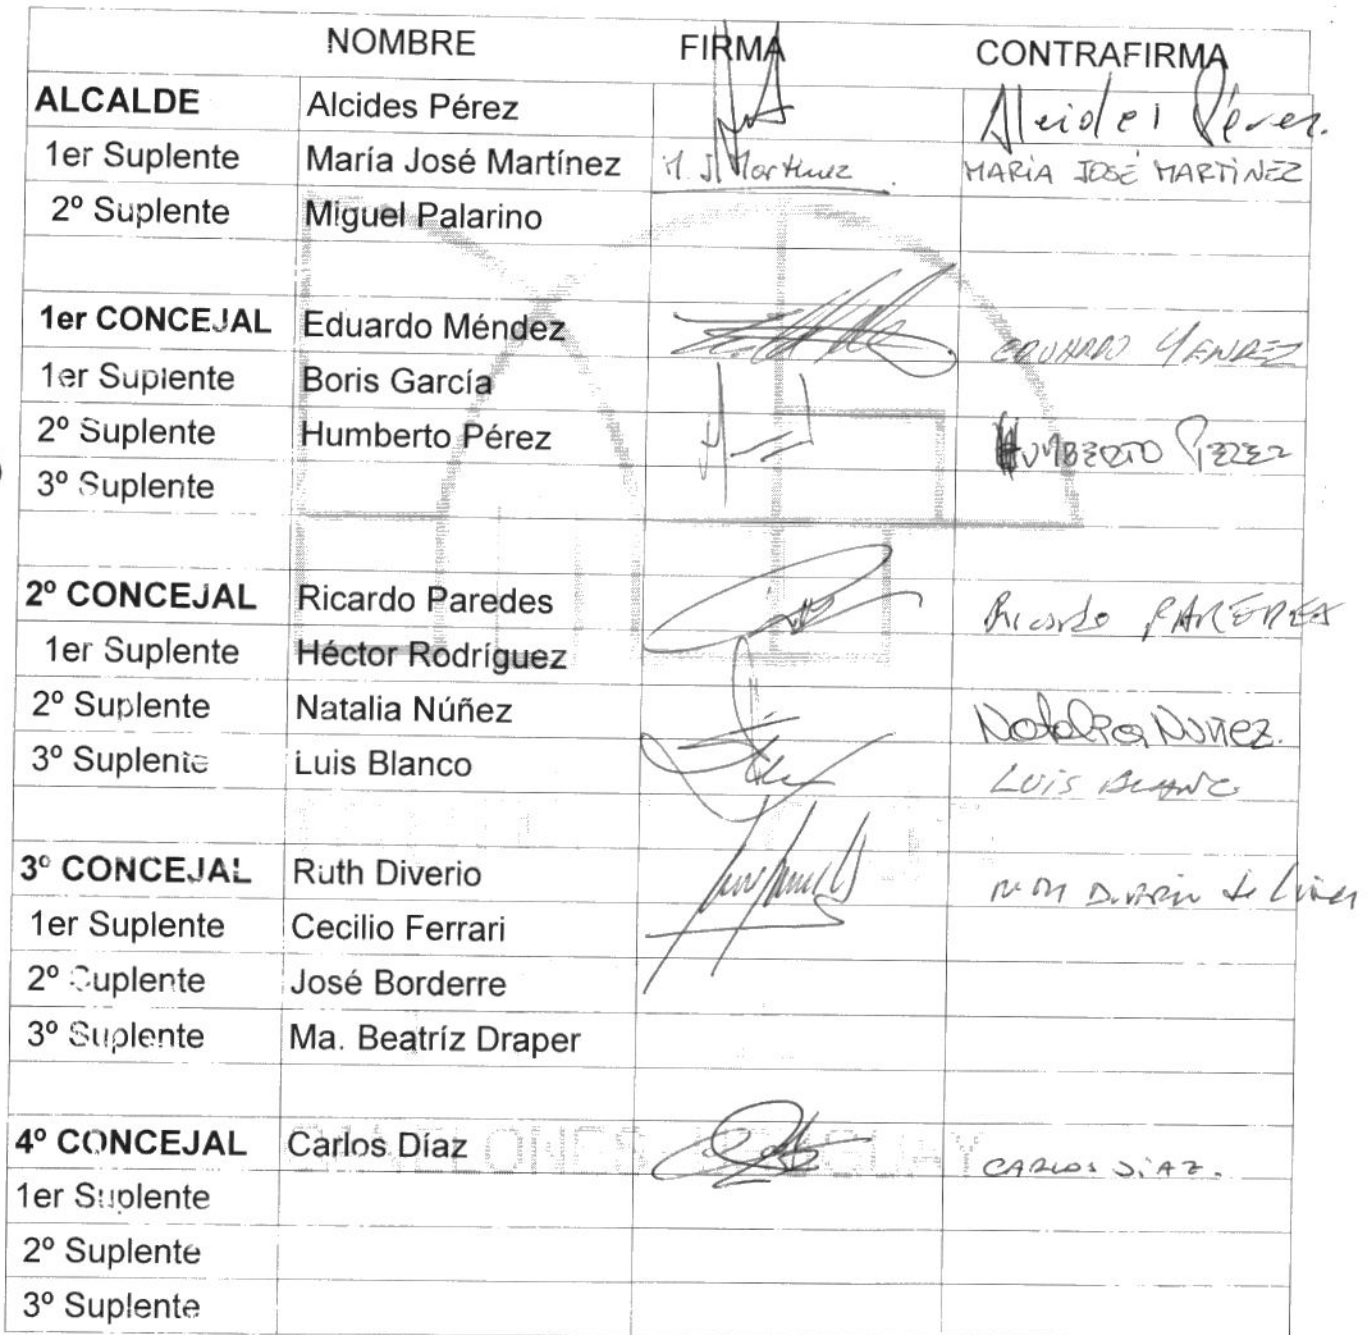 NOMBRE FIRMA CONTRAFIRMA
ALCALDE Alcides Pérez Alcides Pérez.
1er Suplente María José Martínez M. J Martínez MARÍA JOSÉ MARTÍNEZ
2º Suplente Miguel Palarino
1er CONCEJAL Eduardo Méndez EDUARDO MENDEZ
1er Suplente Boris García
2º Suplente Humberto Pérez HUMBERTO PEREZ
3º Suplente
2º CONCEJAL Ricardo Paredes Ricardo PAREDES
1er Suplente Héctor Rodríguez
2º Suplente Natalia Núñez Natalia Nuñez.
3º Suplente Luis Blanco LUIS BLANCO
3º CONCEJAL Ruth Diverio
1er Suplente Cecilio Ferrari
2º Suplente José Borderre
3º Suplente Ma. Beatríz Draper
4º CONCEJAL Carlos Díaz CARLOS DÍAZ.
1er Suplente
2º Suplente
3º Suplente